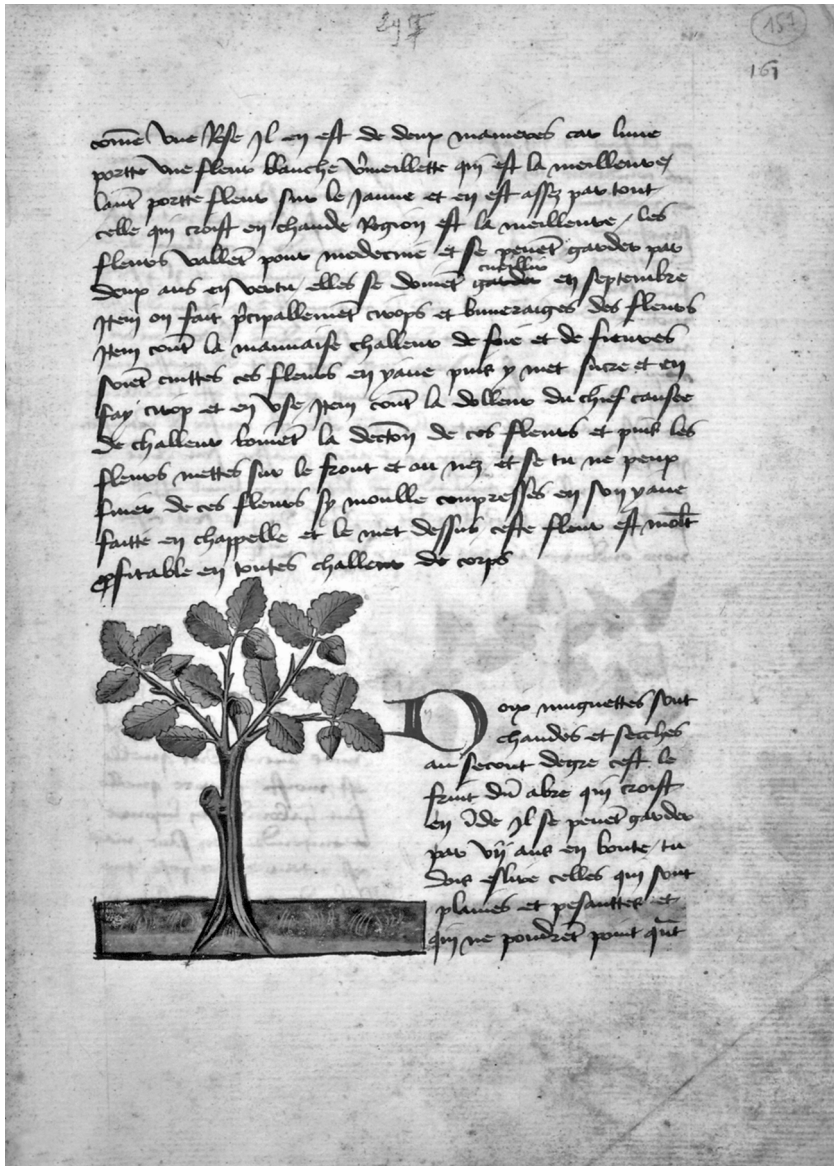 297
157
161
come vne Rose Il en est de deux manieres car lune
portte vne fleur blanche v̄meillette qui est la meilleure /
laut̄ portte fleur sur le Jaune et en est assez par tout
celle qui croist en chaude Region est la meilleure / les
fleurs vallet̄ pour medecine et se peuet̄ garder par
deux ans en vertu / elles se doiuet̄ garder cueillir en septembre
Item on fait p̄cipallement̄ cirops et buueraiges des fleurs
Item cont̄ la mauuaise challeur de foie et de fieures
soiet̄ cuittes ces fleurs en yaue puis y met sucre et en
fay cirop et en vse Item cont̄ la dolleur du chief causee
de challeur la decto̅n de ces fleurs et puis les
fleurs mettes sur le front et au nez et se tu ne peux
finer de ces fleurs sy moulle compresses en son yaue
faitte en chappelle et le met dessus ceste fleur est molt̄
ꝓfitable en toutes challeur de corps
Noix muguettes sont
chaudes et seches
au secont degre cest le
fruit du̅ abre qui croist
en ı̅de Il se peuet̄ garder
par vij ans en bonte / tu
dois eslire celles qui sont
plaines et pesanttes et
qui ne poudret̄ point qua̅t